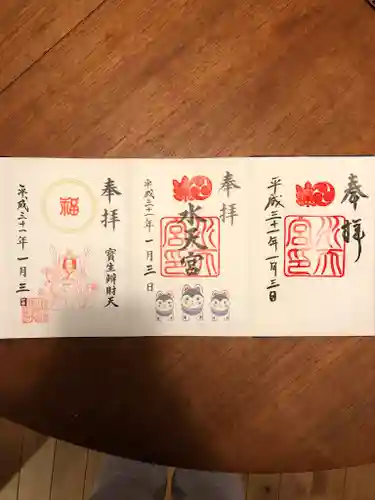 奉拝
平成三十一年一月三日
水天宮印
奉拝
水天宮
平成三十一年一月三日
水天宮印
奉拝
寳生辨財天
福
平成三十一年一月三日